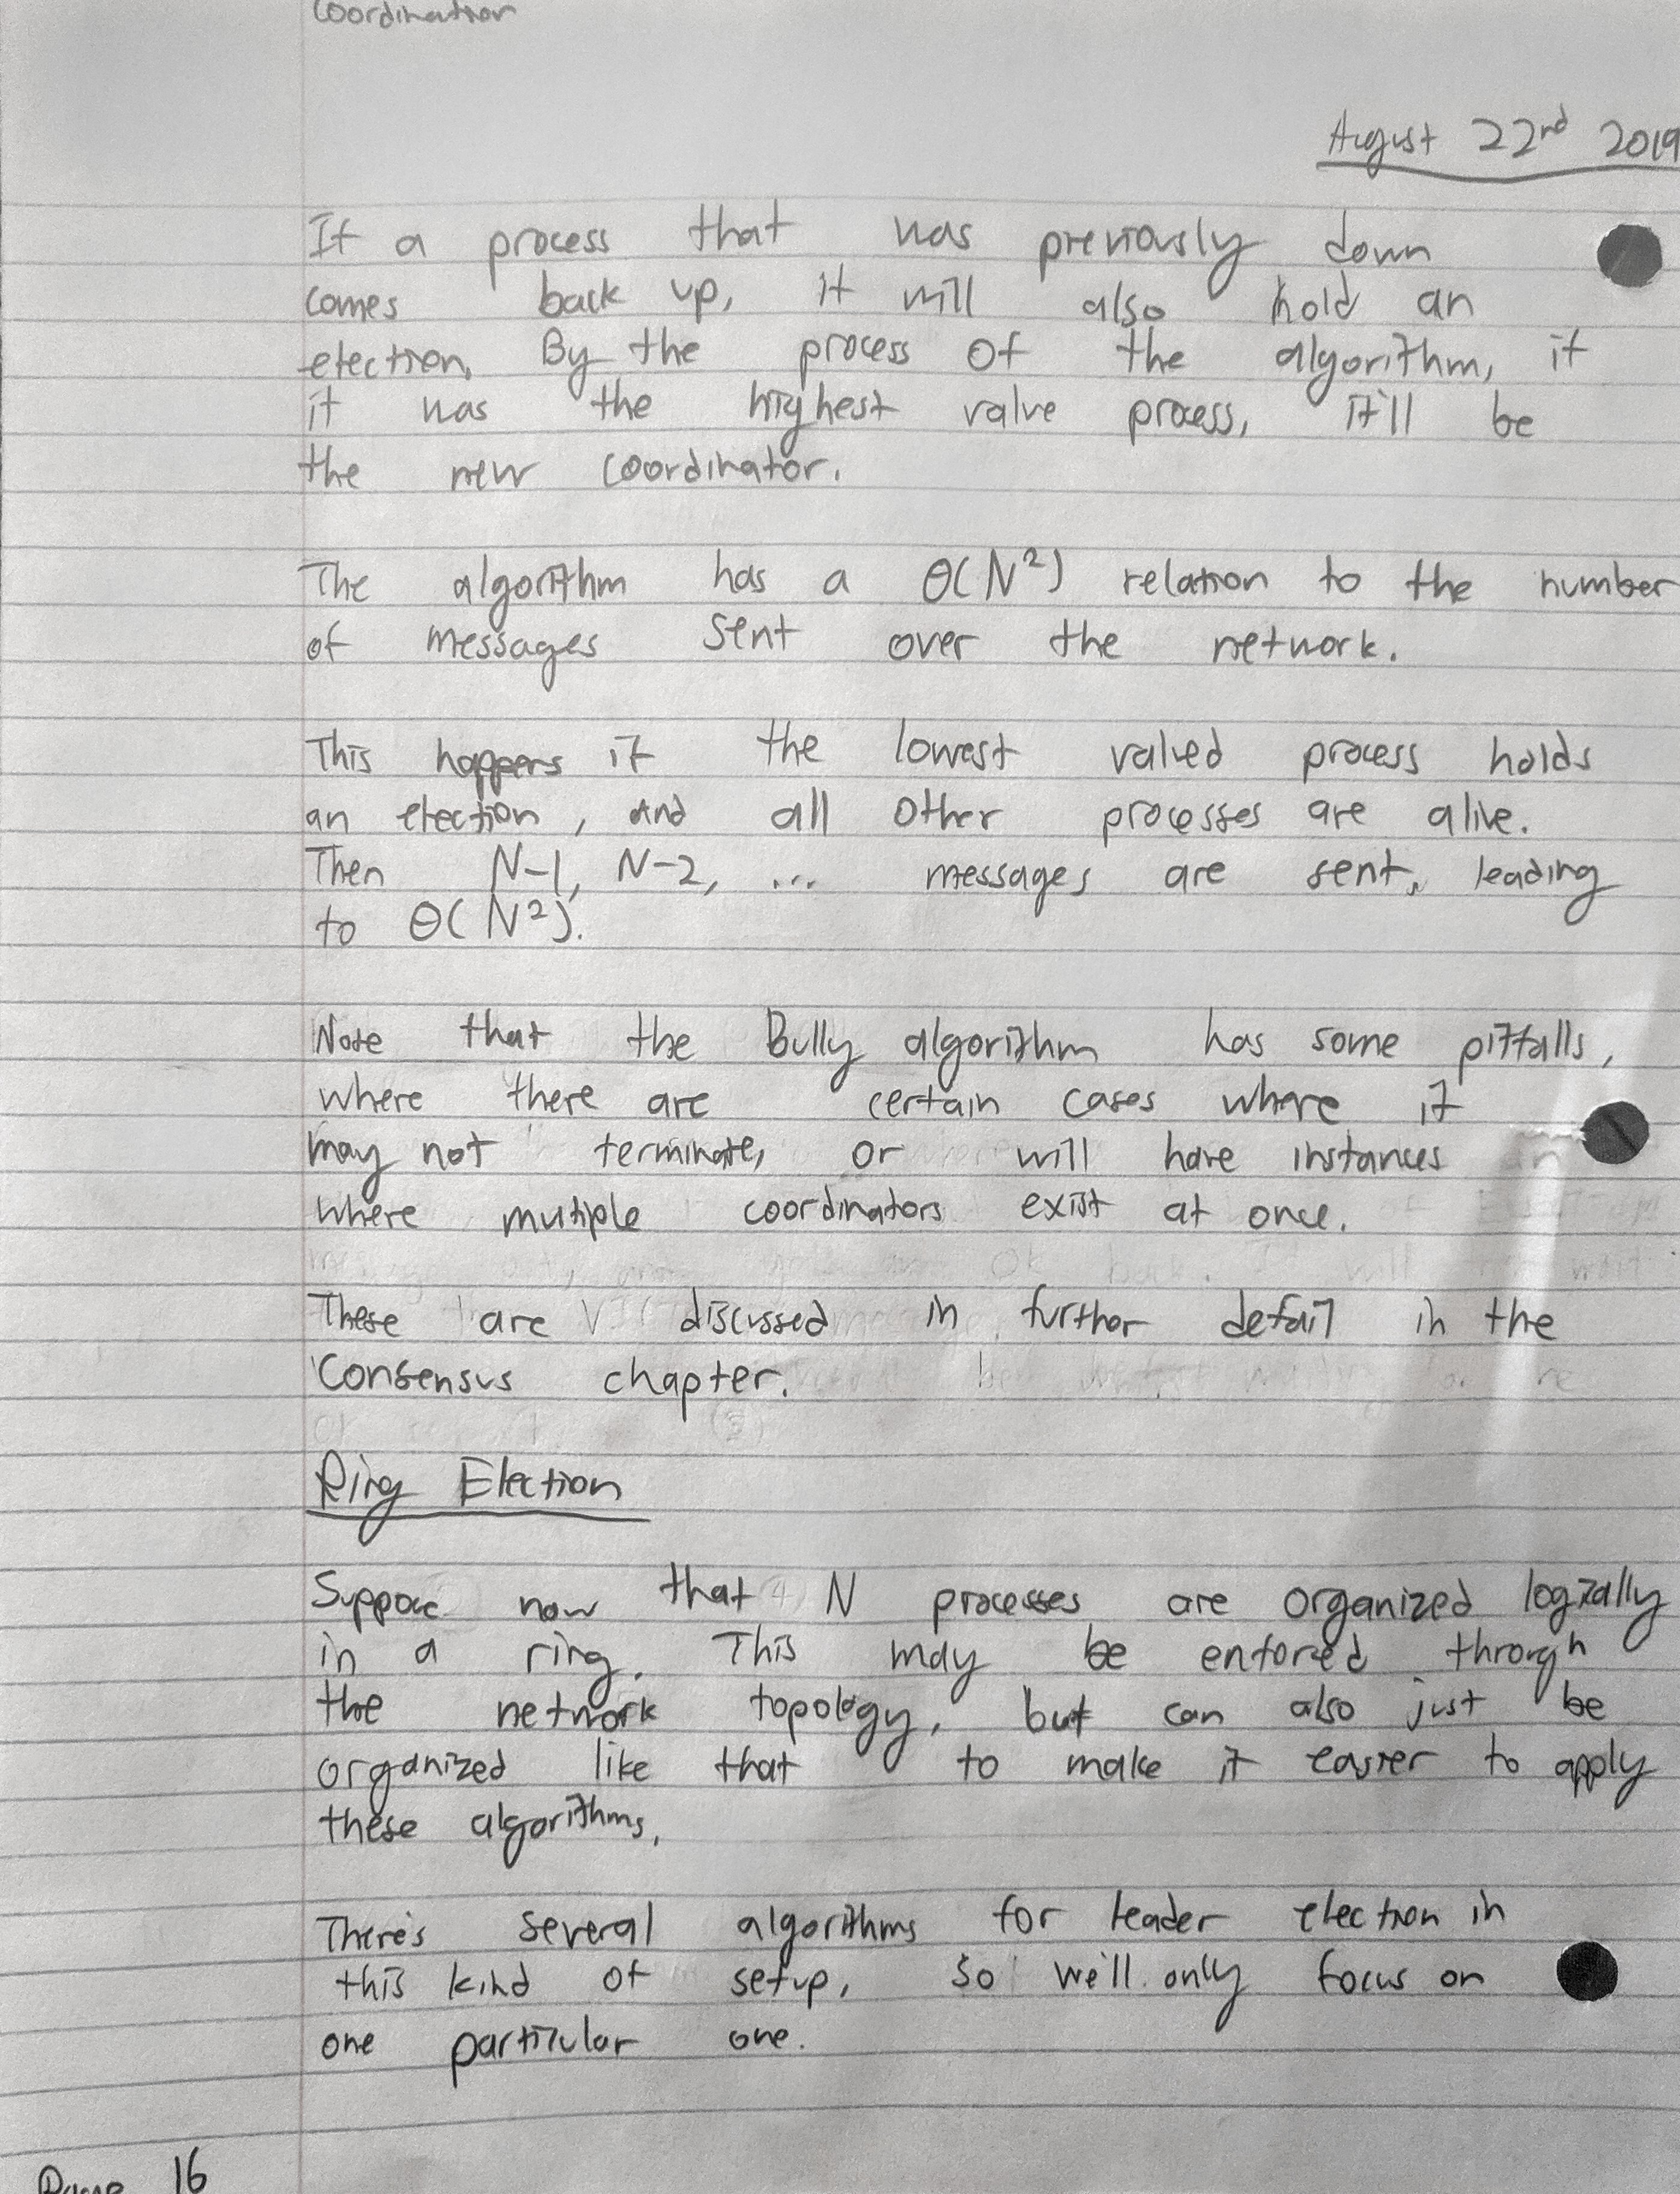 Coordination
August 22nd 2019
If a process that was previously down
comes back up, it will also hold an
election. By the process of the algorithm, if
it was the highest value process, it'll be
the new coordinator.
The algorithm has a Θ(N²) relation to the number
of messages sent over the network.
This happens if the lowest valued process holds
an election, and all other processes are alive.
Then N-1, N-2, ... messages are sent, leading
to Θ(N²).
Note that the Bully algorithm has some pitfalls,
where there are certain cases where it
may not terminate, or will have instances
where mutiple coordinators exist at once.
These are discussed in further detail in the
Consensus chapter.
Ring Election
Suppose now that N processes are organized logically
in a ring. This may be enforced through
the network topology, but can also just be
organized like that to make it easier to apply
these algorithms.
There's several algorithms for leader election in
this kind of setup, so we'll only focus on
one particular one.
Page 16